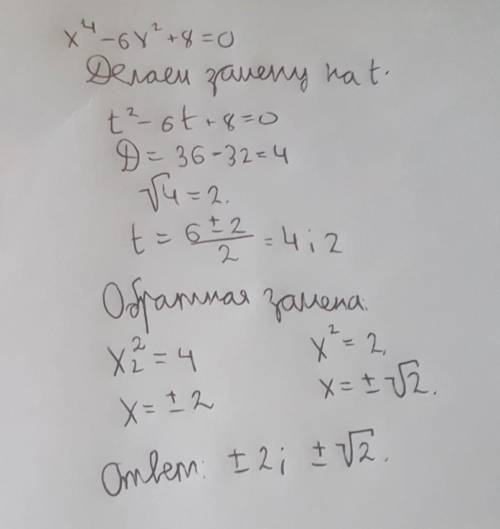 x⁴-6x²+8=0
Делаем замену на t.
t²-6t+8=0
Д=36-32=4
√4=2.
t=(6±2)/2=4;2
Обратная замена.
x₂²=4 x²=2,
x=±2 x=±√2.
Ответ: ±2; ±√2.